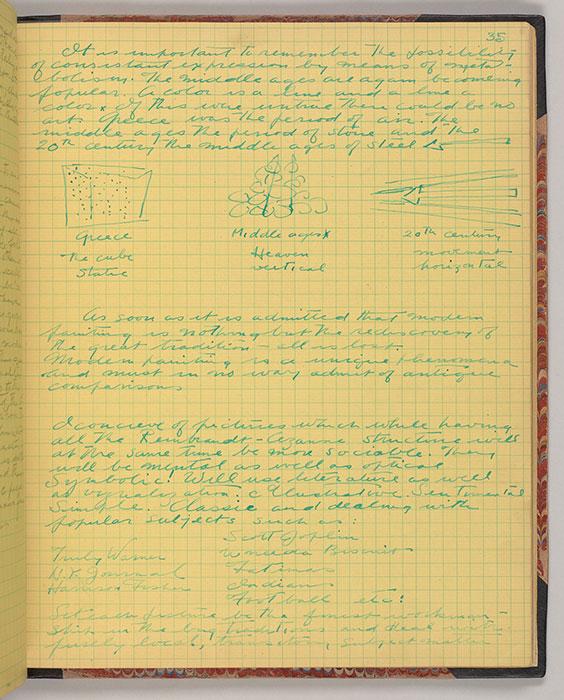 35
It is important to remember the possibility
of consistant expression by means of metal-
bolism. The middle ages are again becoming
popular. A color is a line and a line a
color x If this were untrue there could be no
art. Greece was the period of air. The
middle ages the period of stone and the
20th century the middle ages of steel
Greece
the cube
static
Middle ages x
Heaven
vertical
20th century
movement
horizontal
As soon as it is admitted that modern
painting is nothing but the rediscovery of
the great tradition all is lost.
Modern painting is a unique phenomena
and must in no way admit of antique
comparisons
I conceive of pictures which while having
all the Rembrandt-Cezanne structure will
at the same time be more sociable. They
will be mental as well as optical
Symbolic! Will use literature as well
as visualization. Illustrative. Sentimental
Simple. Classic and dealing with
popular subjects such as:
Truly Warner
N.Y. Journal
Harrison Fisher
Scott Joplin
Uneeda Biscuits
Fatimas
Indians
Football etc:
Let each picture be the finest workman-
ship in the big traditions and deal with
purely local, transitory, subject matter